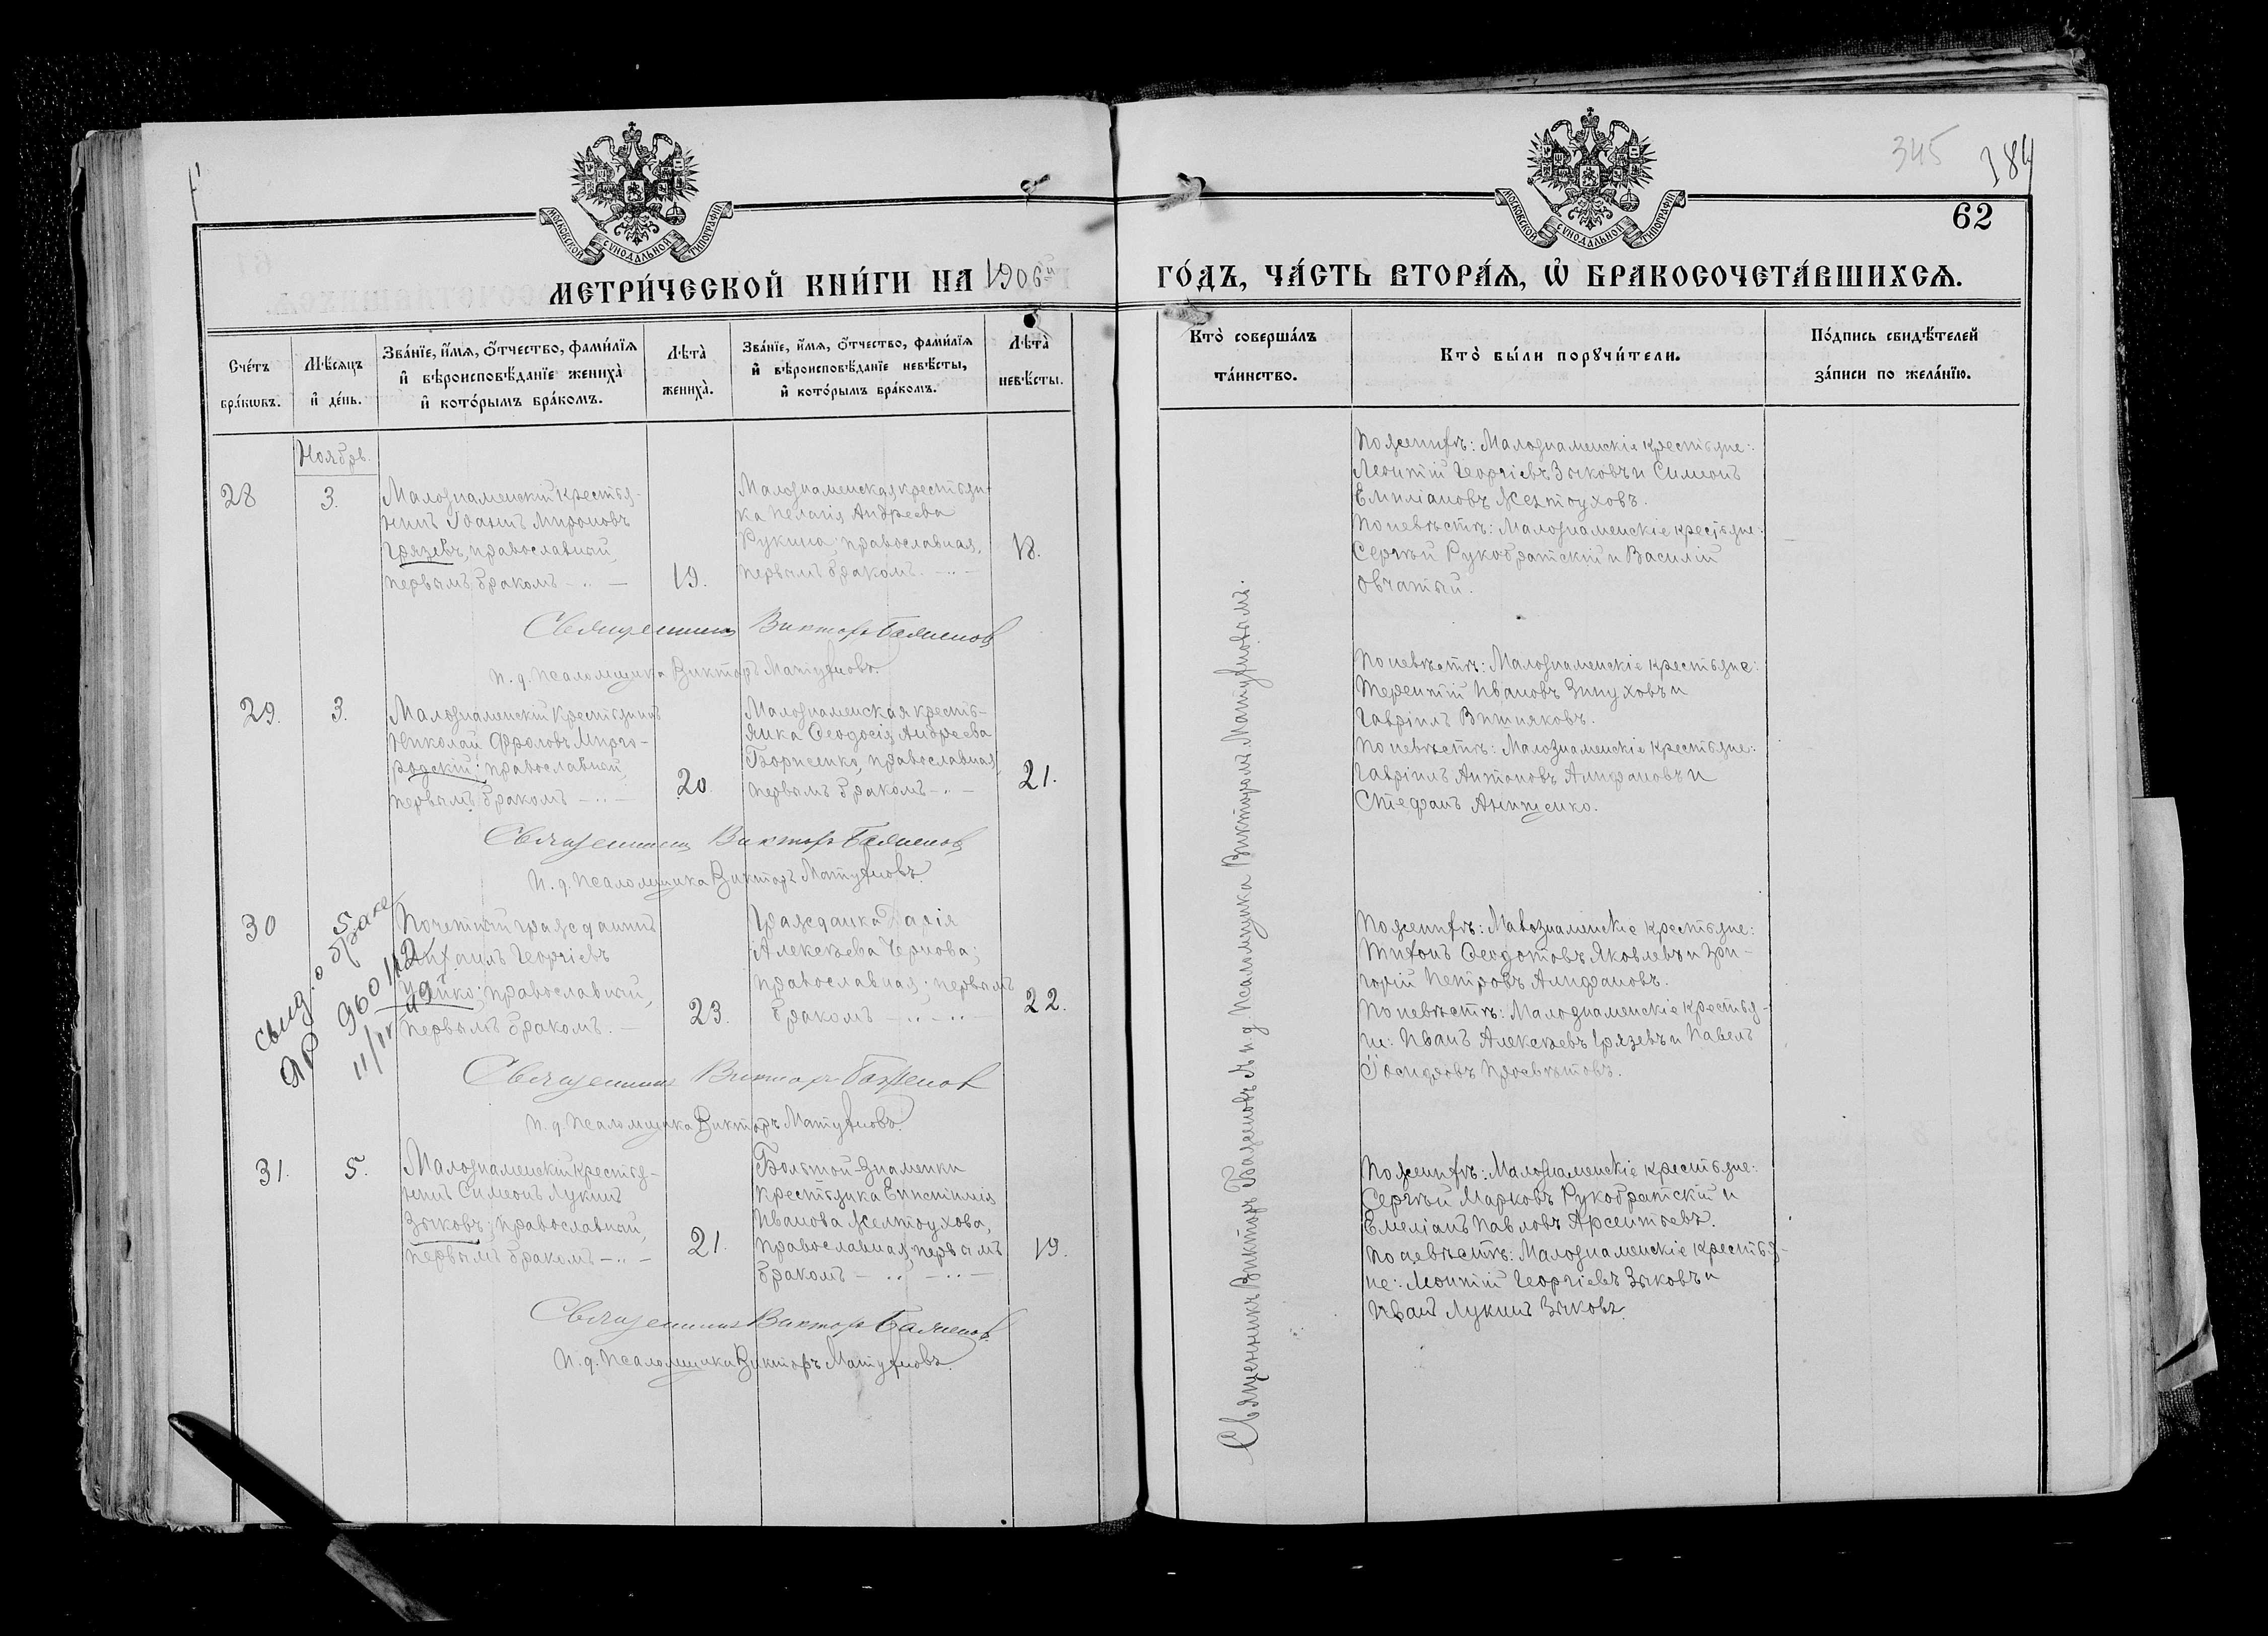 345 184
62
МОСКОВСКОЙ СѴНОДАЛЬНОЙ ТИПОГРАФІИ
МОСКОВСКОЙ СѴНОДАЛЬНОЙ ТИПОГРАФІИ
МЕТРИ́ЧЕСКОЙ КНИ́ГИ НА 1906й ГО́ДЪ, ЧА́СТЬ ВТОРА́Я, Ѽ БРАКОСОЧЕТА́ВШИХСЯ.
Сче́тъ бра́кѡвъ.
Мѣ́сяцъ и҆ де́нь.
Зва́нїе, и҆́мя, ѻ҆́тчество, фами́лїя и҆ вѣроисповѣ́данїе жениха̀ и҆ кото́рымъ бра́комъ.
Лѣта̀ жениха̀.
Зва́нїе, и҆́мя, ѻ҆́тчество, фами́лїя и҆ вѣроисповѣ́данїе невѣ́сты, и҆ кото́рымъ бра́комъ.
Лѣта̀ невѣ́сты.
Кто̀ соверша́лъ та́инство.
Кто̀ бы́ли порꙋчи́тели.
По́дпись свидѣ́телей за́писи по жела́нїю.
Ноябрь.
28
3.
Малознаменскій крестья-
нинъ Іоаннъ Мироновъ
Грязевъ, православный,
первымъ бракомъ
19.
Малознаменская крестьян-
ка Пелагія Андреева
Рукина, православная,
первымъ бракомъ.
18.
По женихѣ: Малознаменскіе крестьяне:
Леонтій Георгіевъ Зыковъ и Симеонъ
Емиліановъ Желтоуховъ.
По невѣстѣ: Малознаменскіе крестьяне:
Сергѣй Рукобратскій и Василій
Овчатый.
Священникъ Викторъ Баженовъ
И. д. псаломщика Викторъ Матуфновъ.
29.
3.
Малознаменскій крестьянинъ
Николай Фроловъ Мирго-
родскій, православный,
первымъ бракомъ
20
Малознаменская кресть-
янка Ѳеодосія Андреева
Борисенко, православная,
первымъ бракомъ
21.
По невѣстѣ: Малознаменскіе крестьяне:
Терентій Ивановъ Зинуховъ и
Гавріилъ Витняковъ.
По невѣстѣ: Малознаменскіе крестьяне:
Гавріилъ Антоновъ Алифановъ и
Стефанъ Анищенко.
Священникъ Викторъ Баженовъ
И. д. псаломщика Викторъ Матуфновъ.
30
5
свид. о браке
№ 960
Почетный гражданинъ
Михаилъ Георгіевъ
православный,
первымъ бракомъ.
23.
Гражданка Дарія
Алексѣева Чернова;
православная; первымъ
бракомъ
22.
По женихѣ: Малознаменскіе крестьяне:
Тихонъ Ѳеодотовъ Яковлевъ и Гри-
горій Петровъ Алифановъ.
По невѣстѣ: Малознаменскіе крестья-
не: Иванъ Алексѣевъ Грязевъ и Павелъ
Іосифовъ Просвѣтовъ.
Священникъ Викторъ Баженовъ
И. д. псаломщика Викторъ Матуфновъ.
31.
5.
Малознаменскій крестья-
нинъ Симеонъ Лукинъ
Зыковъ, православный,
первымъ бракомъ
21.
Большой-Знаменки
крестьянка Епистимія
Иванова Желтоухова,
православная, первымъ
бракомъ
19.
По женихѣ: Малознаменскіе крестьяне:
Сергѣй Марковъ Рукобратскій и
Емеліанъ Павловъ Арсентьевъ.
По невѣстѣ: Малознаменскіе крестья-
не: Леонтій Георгіевъ Зыковъ и
Иванъ Лукинъ Зыковъ.
Священникъ Викторъ Баженовъ
И. д. псаломщика Викторъ Матуфновъ.
Священникъ Викторъ Баженовъ и и. д. псаломщика Викторомъ Матуфновымъ.